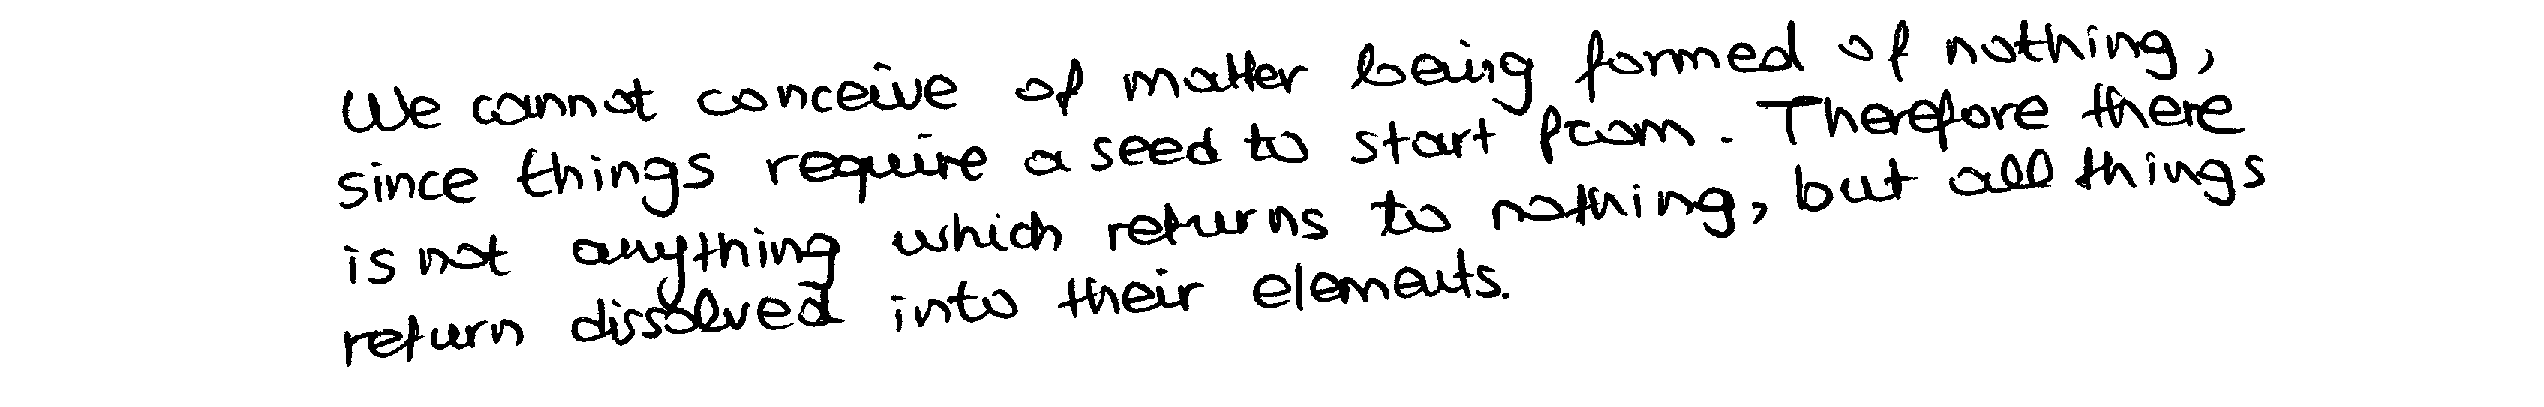 We cannot conceive of matter being formed of nothing,
since things require a seed to start from. Therefore there
is not anything which returns to nothing, but all things
return dissolved into their elements.